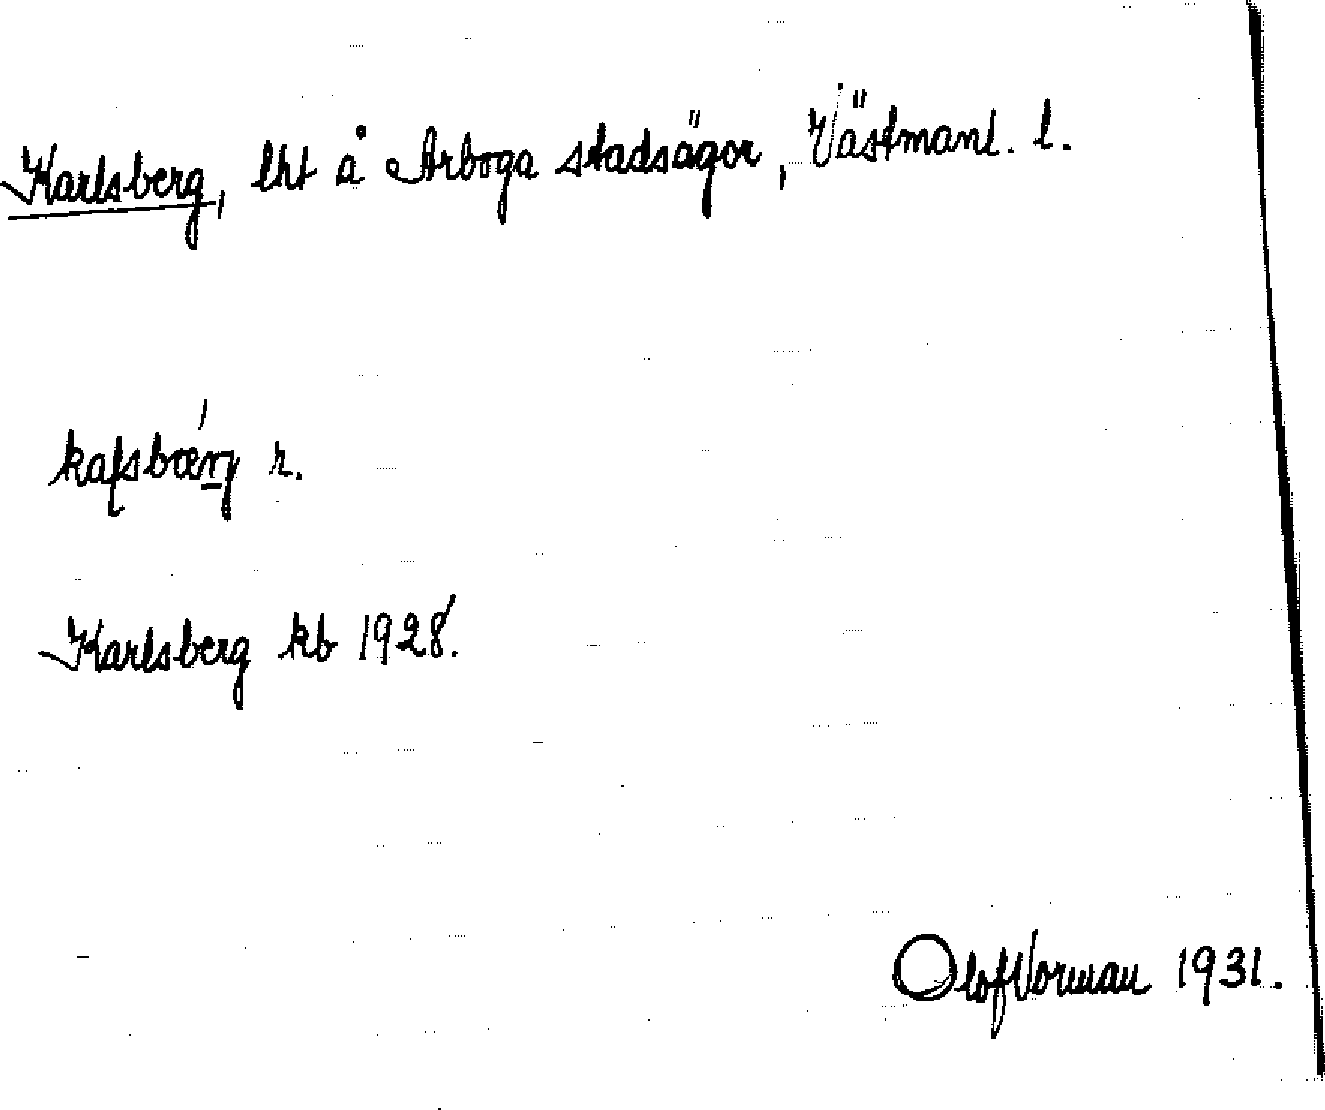 Karlsberg, lht å Arboga stadsägor, Västmanl. l.
r.
Karlsberg kb 1928.
Olof Vorman 1931.